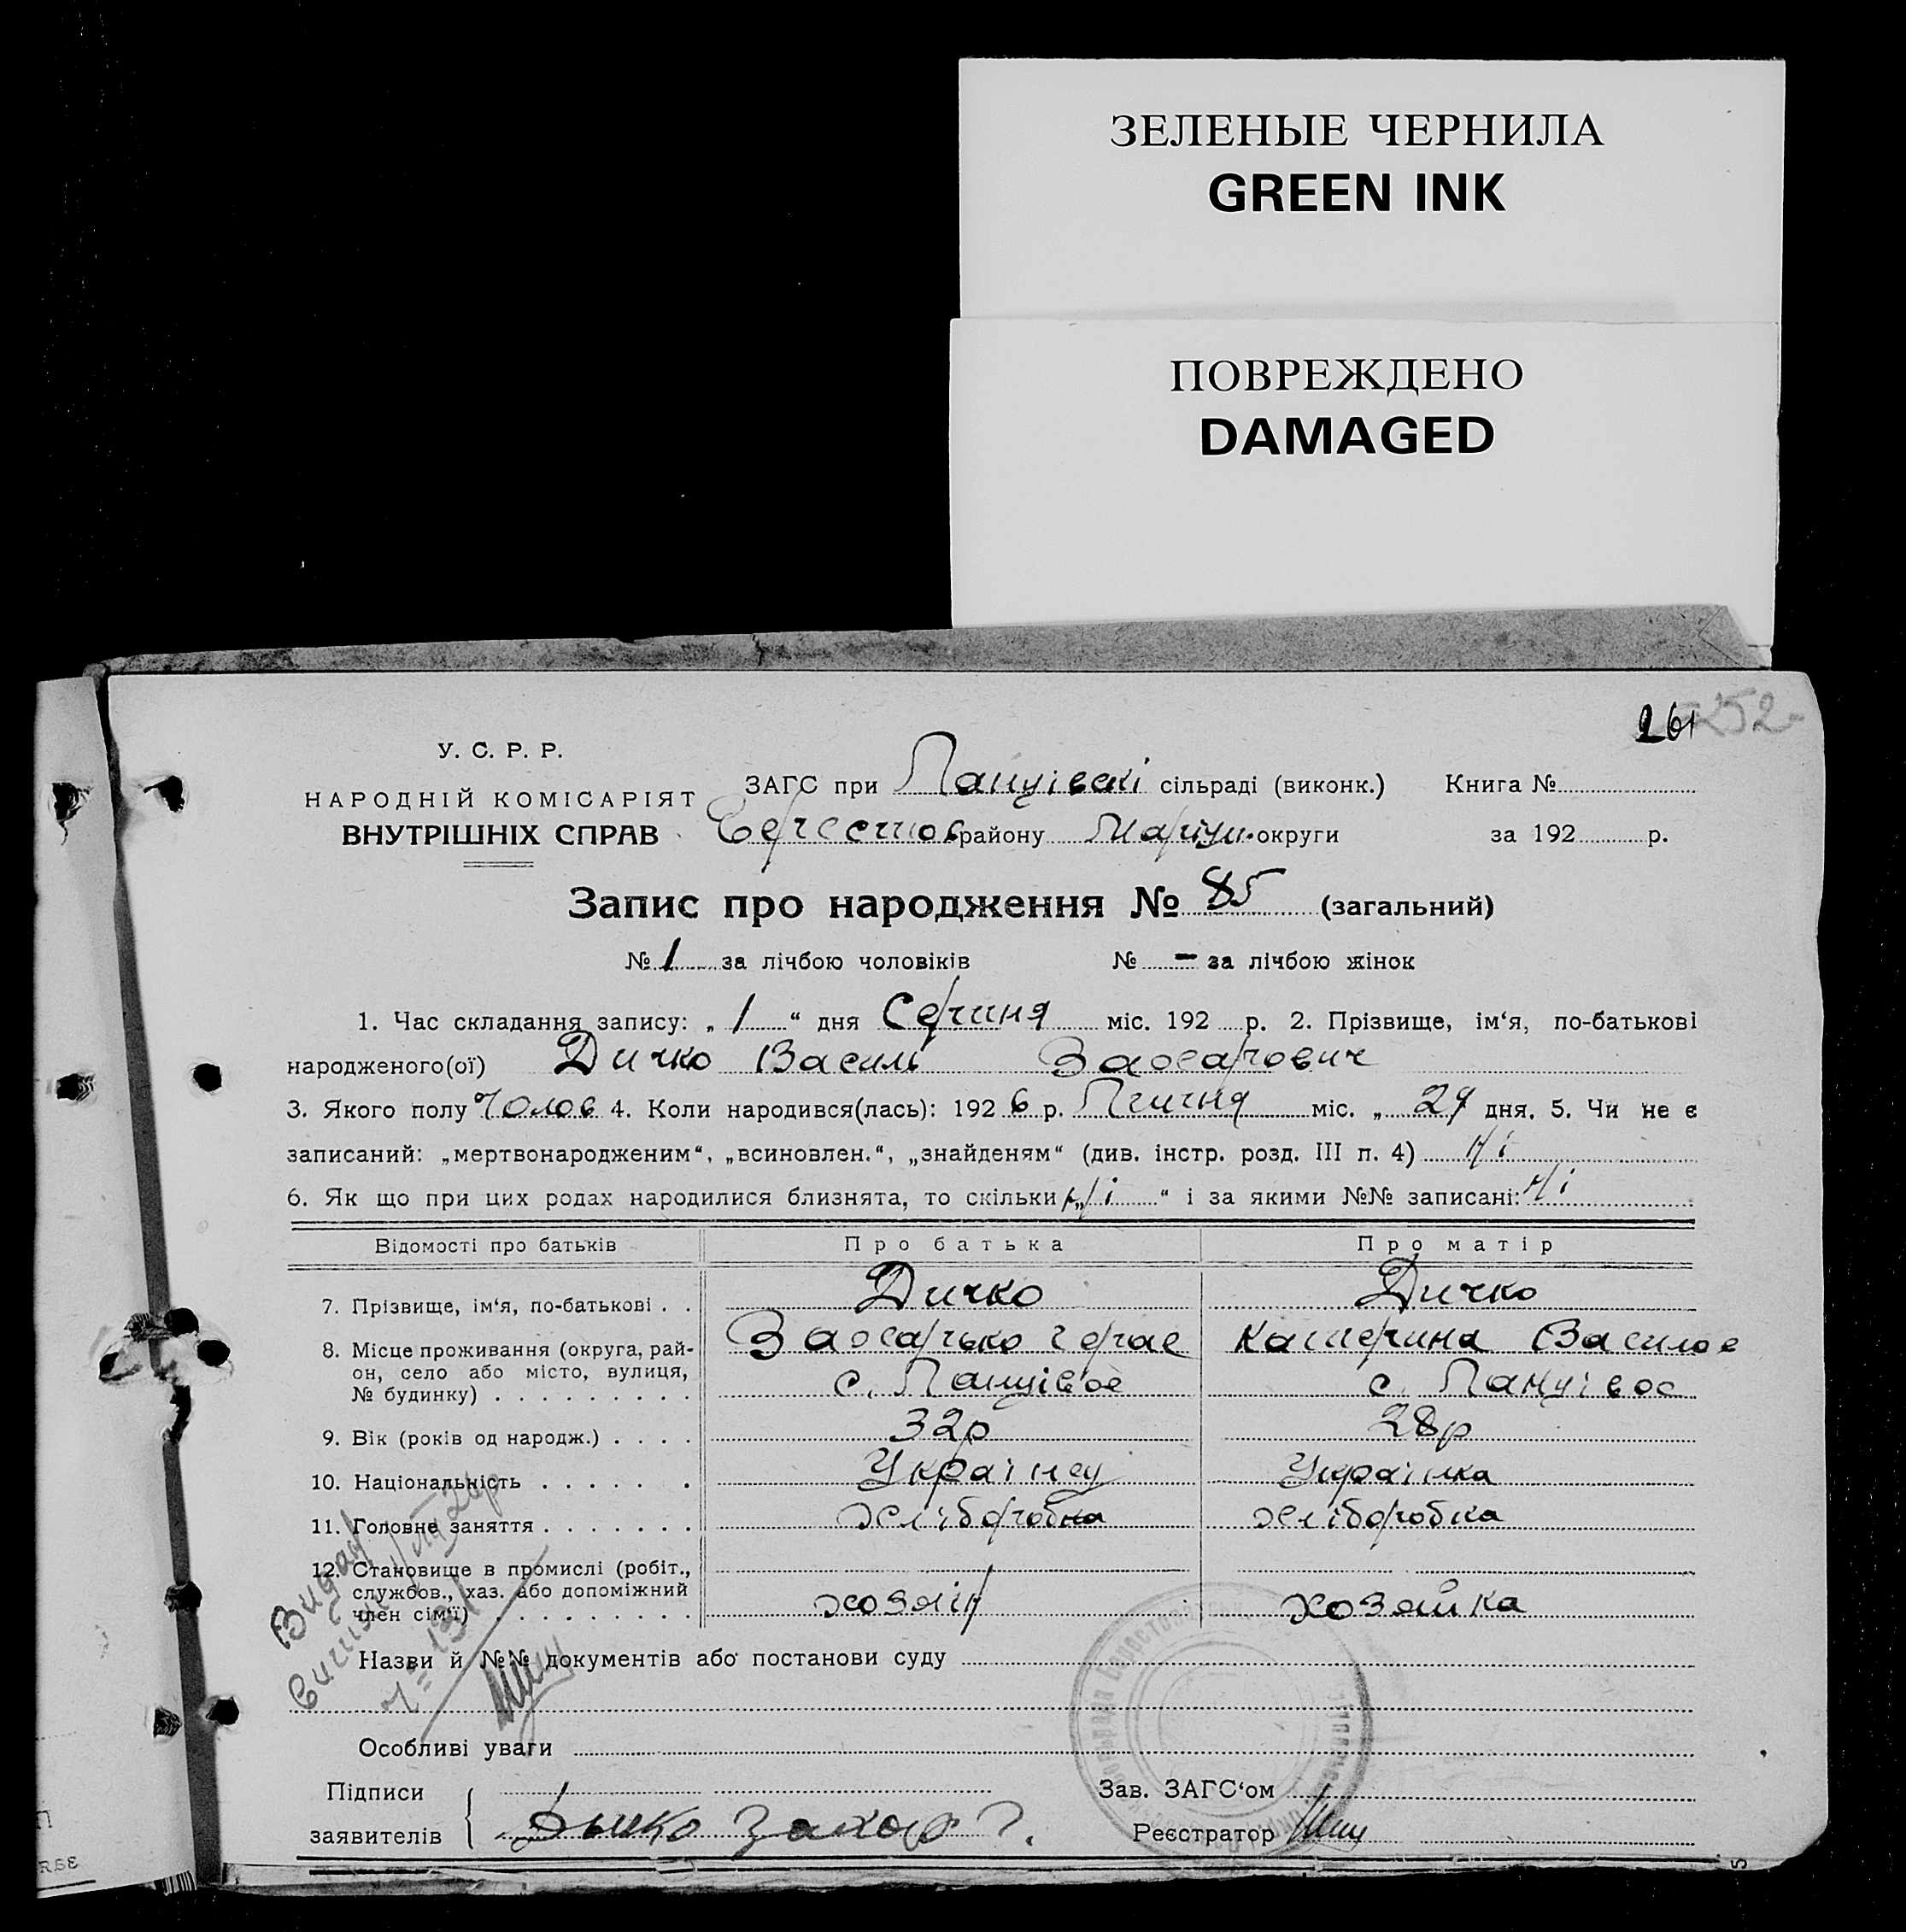 ЗЕЛЕНЫЕ ЧЕРНИЛА
GREEN INK
ПОВРЕЖДЕНО
DAMAGED
261 252
У. С. Р. Р.
НАРОДНІЙ КОМІСАРІЯТ
ВНУТРІШНІХ СПРАВ
ЗАГС при сільраді (виконк.) Книга №
району Маріуп. округи за 192 р.
Запис про народження № 85 (загальний)
№ 1 за лічбою чоловіків № - за лічбою жінок
1. Час складання запису: „ 1 “ дня Серпня міс. 192 р. 2. Прізвище, ім‘я, по-батькові
народженого(ої) Дичко Василь Захарович
3. Якого полу Чолов 4. Коли народився(лась): 192 6 р. Липня міс. „ 29 дня. 5. Чи не є
записаний: „мертвонародженим“, „всиновлен.“, „знайденям“ (див. інстр. розд. III п. 4) Ні
6. Як що при цих родах народилися близнята, то скільки „ ні “ і за якими №№ записані: Ні
Відомості про батьків Про батька Про матір
7. Прізвище, ім‘я, по-батькові . . Дичко Дичко
Захарько Катерина Васил
8. Місце проживання (округа, рай-
он, село або місто, вулиця,
№ будинку) . . . . . . . . . с. с.
9. Вік (років од народж.) . . . . 32р 28р
10. Національність . . . . . . Українец Українка
11. Головне заняття . . . . . . . хліборобка хліборобка
12. Становище в промислі (робіт.,
службов., хаз. або допоміжний
член сім‘ї) . . . . . . . . . хозяїн хозяйка
Видан
Назви й №№ документів або постанови суду
Особливі уваги
Підписи
заявителів Дычко Захар Г.
Зав. ЗАГС‘ом
Реєстратор
5